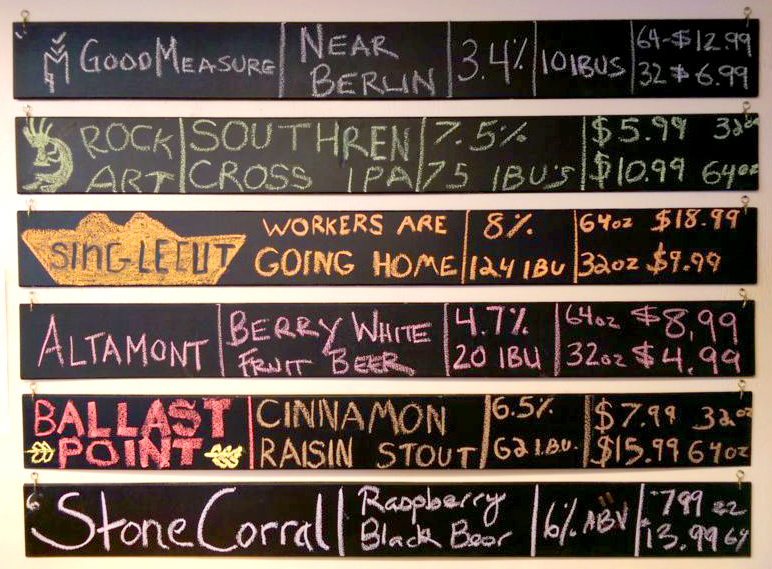 GOODMEASURE NEAR BERLIN 3.4% 10IBUS 64-$12.99
32 $6.99
ROCK ART SOUTHREN CROSS IPA 7.5% 75 IBU'S $5.99 32oz
$10.99 64oz
SINGLECUT WORKERS ARE GOING HOME 8% 124 IBU 64oz $18.99
32oz $9.99
ALTAMONT BERRY WHITE FRUIT BEER 4.7% 20 IBU 64oz $8.99
32oz $4.99
BALLAST POINT CINNAMON RAISIN STOUT 6.5% 62 I.B.U. $7.99 32oz
$15.99 64oz
Stone Corral Raspberry Black Beer 6% ABV 7.99
13.99 64